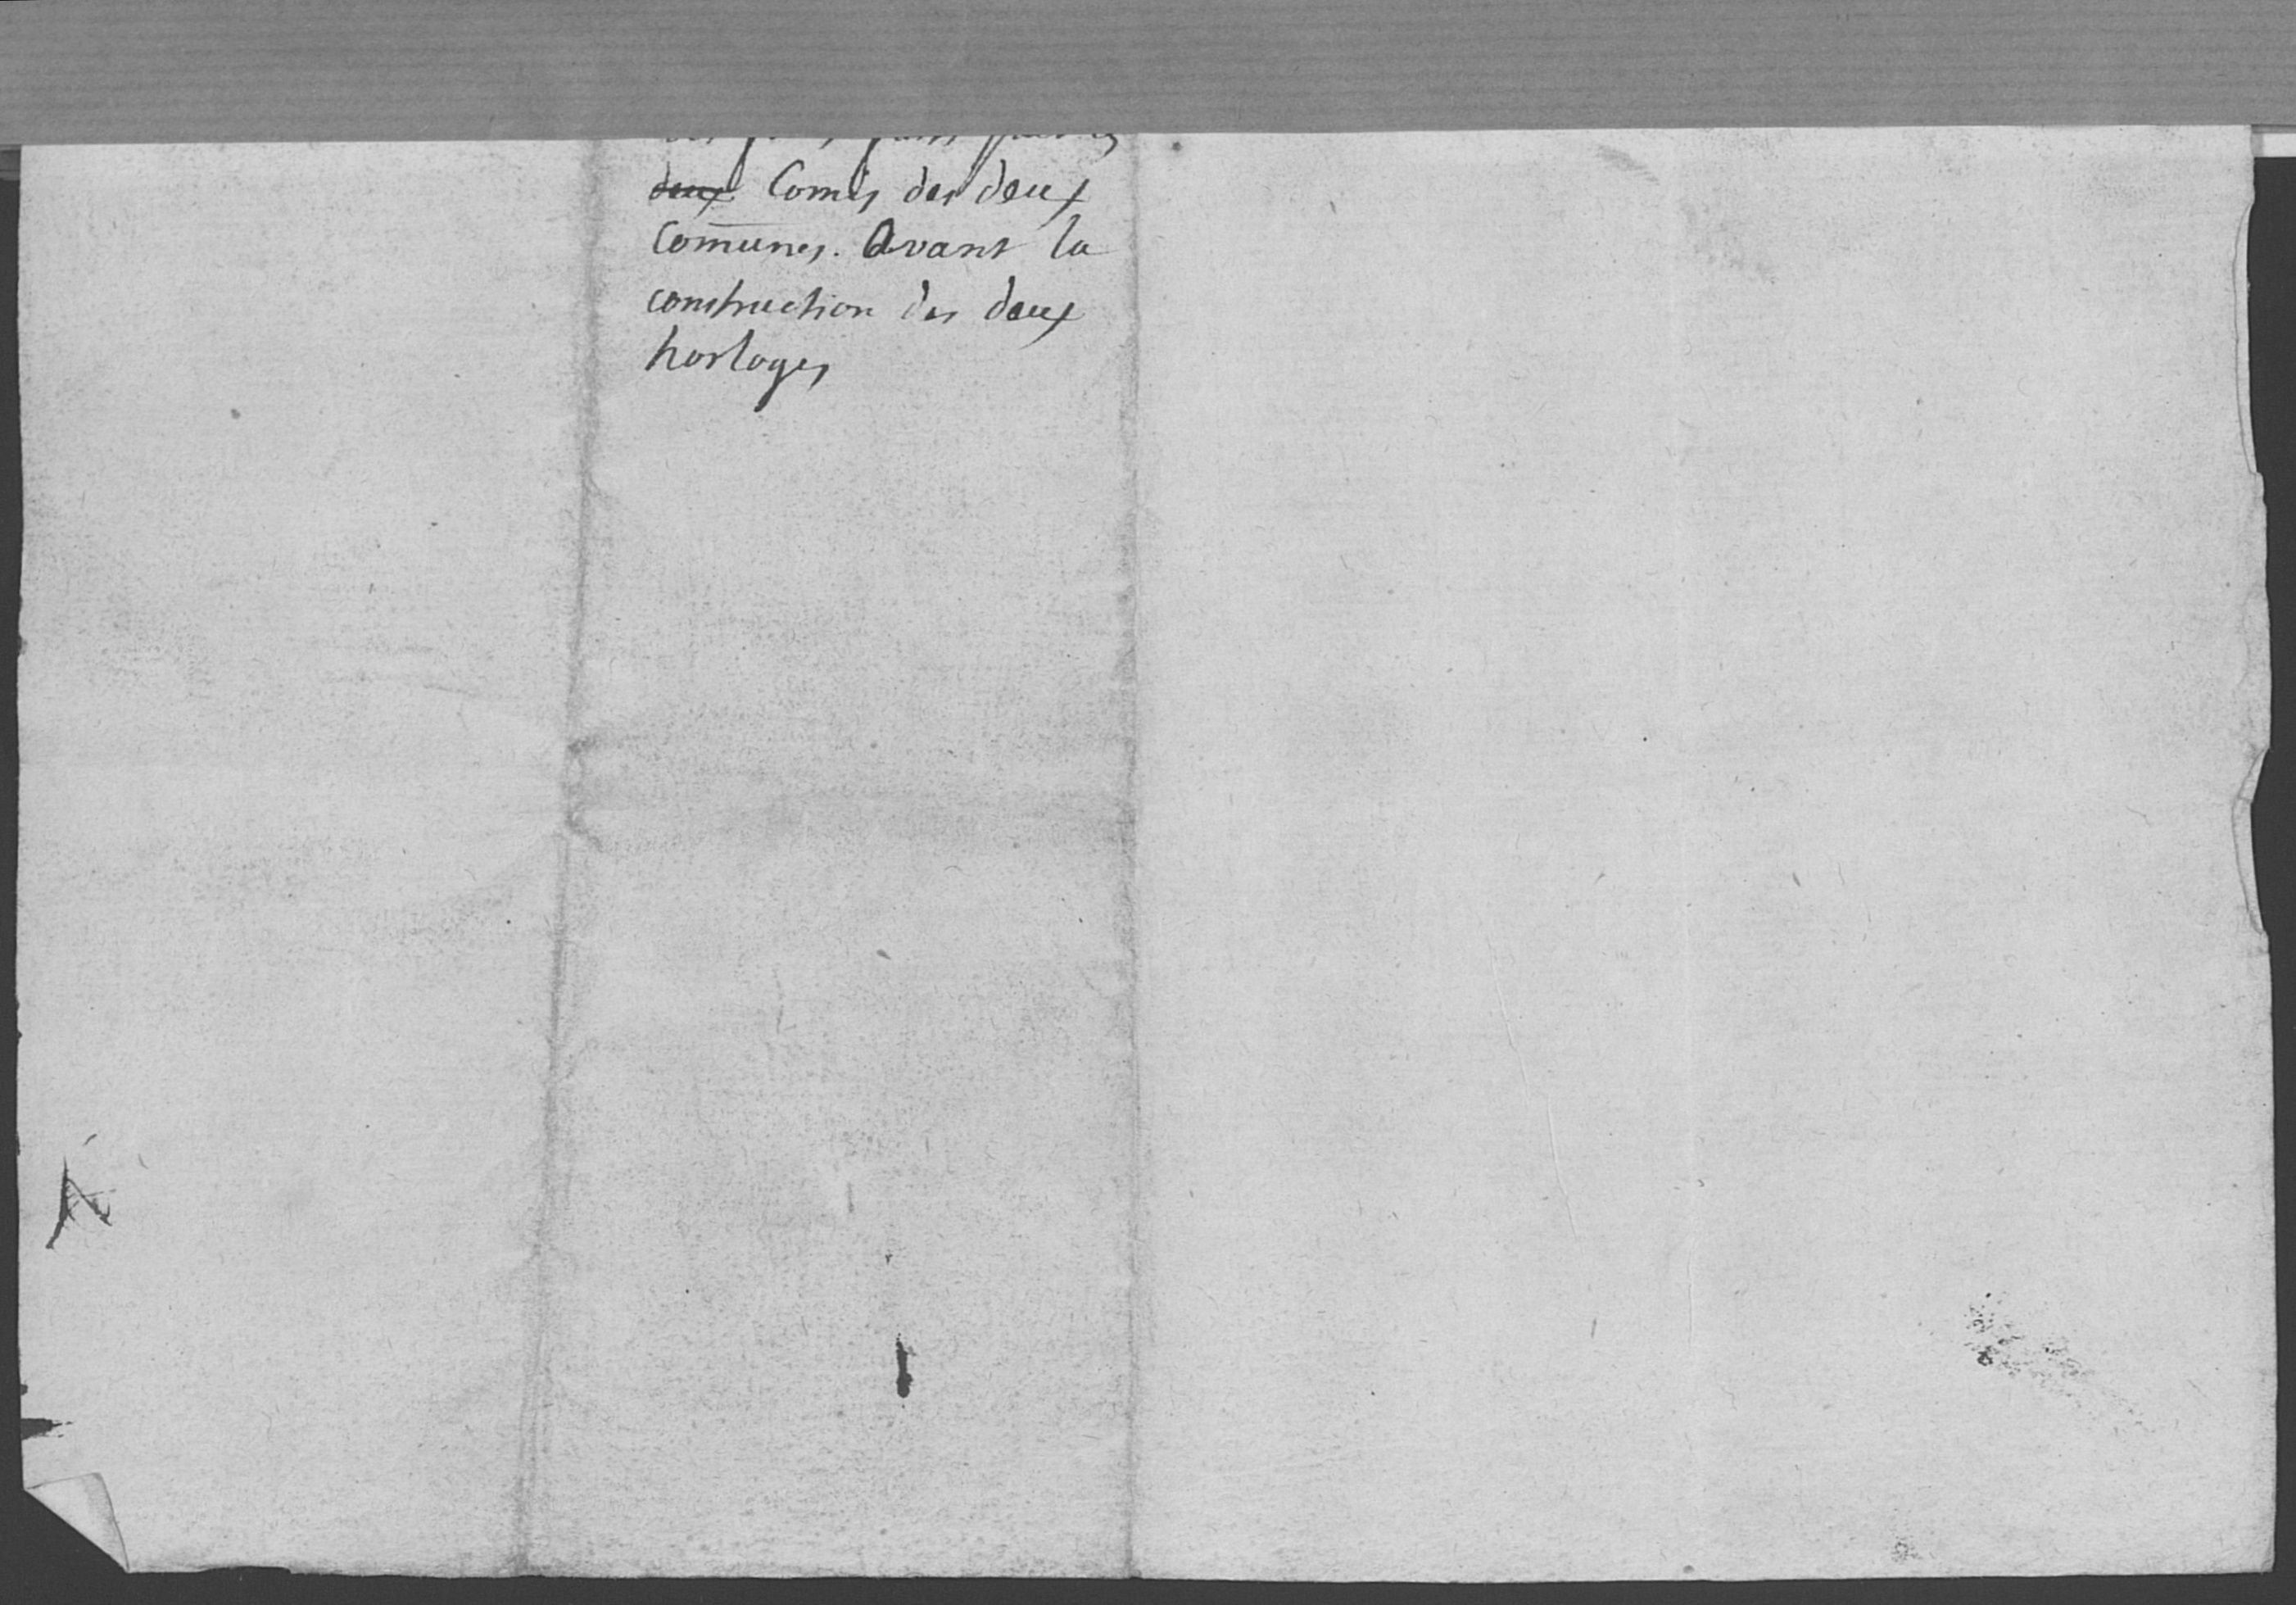 deux Comis des deux
Com̄unes. Avant la
construction des deux
horloges